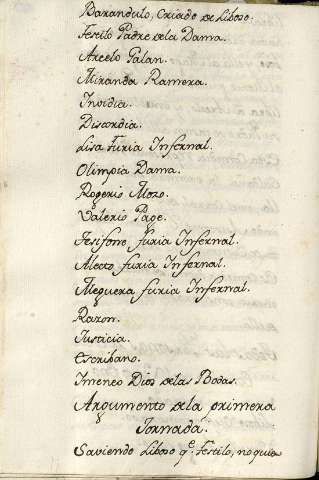 Barandulo, Criado de Liboso.
Festilo Padre dela Dama.
Arcelo Galan.
Miranda Ramera.
Invidia.
Discordia.
Lisa Furia Infernal.
Olimpia Dama.
Rogerio Mozo.
Valerio Page.
Tesifone furia Infernal.
Alecto furia Infernal.
Meguera furia Infernal.
Razon.
Iusticia.
Escribano.
Imeneo Dios delas Bodas.
Argumento dela primera
Jornada.
Saviendo Liboso q.e Festilo, no quie